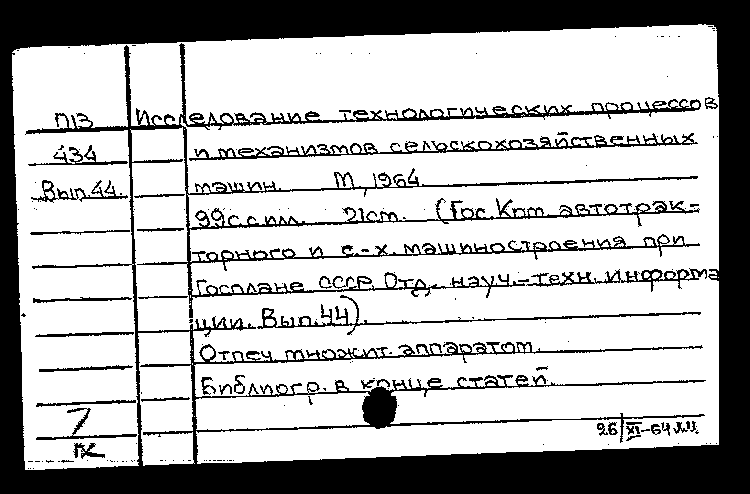 П13 Исследование технологических процессов
434 и механизмов сельскохозяйственных
Вып.44. машин. М, 1964.
99с.с илл. 21см. (Гос. Ком. автотрак-
торного и с.-х. машиностроения при
Госплане СССР. Отд. науч.-техн. информа
ции. Вып.44).
Отпеч. множит. аппаратом.
Библиогр. в конце статей.
26/XI-64